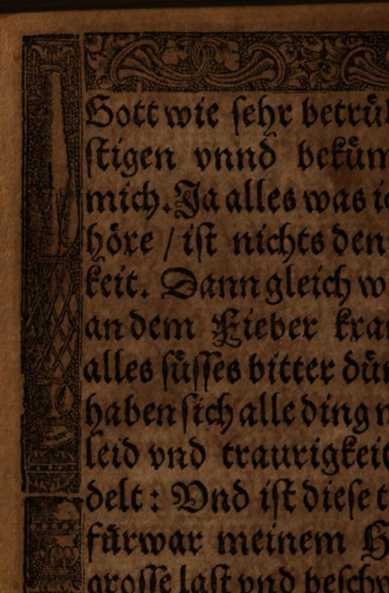 Gott wie sehr betrü
ſtigen vnnd beküm
mich. Ja alles was i
höre / iſt nichts den
keit. Dann gleich w
an dem Fieber kra
alles ſüſſes bitter dü
haben ſich alle ding
leid vnd traurigkei
delt: Vnd iſt dieſe
fürwar meinem H
groſſe laſt vnd beſchw